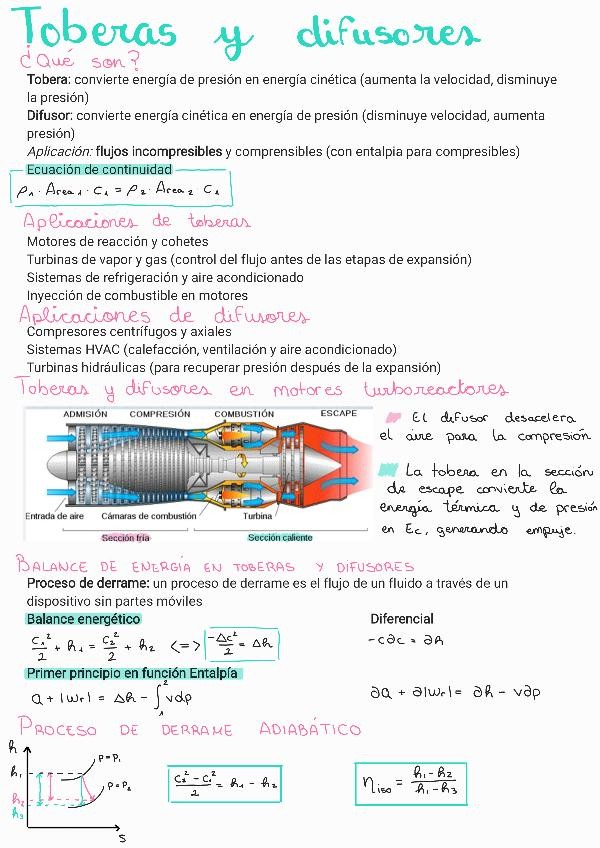 Toberas y difusores
¿Qué son?
Tobera: convierte energía de presión en energía cinética (aumenta la velocidad, disminuye
la presión)
Difusor: convierte energía cinética en energía de presión (disminuye velocidad, aumenta
presión)
Aplicación: flujos incompresibles y comprensibles (con entalpia para compresibles)
Ecuación de continuidad
ρ₁ · Area₁ · c₁ = ρ₂ · Area₂ · c₁
Aplicaciones de toberas
Motores de reacción y cohetes
Turbinas de vapor y gas (control del flujo antes de las etapas de expansión)
Sistemas de refrigeración y aire acondicionado
Inyección de combustible en motores
Aplicaciones de difusores
Compresores centrífugos y axiales
Sistemas HVAC (calefacción, ventilación y aire acondicionado)
Turbinas hidráulicas (para recuperar presión después de la expansión)
Toberas y difusores en motores turboreactores
ADMISIÓN COMPRESIÓN COMBUSTIÓN ESCAPE
Entrada de aire Cámaras de combustión Turbina
Sección fría Sección caliente
El difusor desacelera
el aire para la compresión
La tobera en la sección
de escape convierte la
energía térmica y de presión
en Ec, generando empuje.
BALANCE DE ENERGIA EN TOBERAS Y DIFUSORES
Proceso de derrame: un proceso de derrame es el flujo de un fluido a través de un
dispositivo sin partes móviles
Balance energético Diferencial
c₁²/2 + h₁ = c₂²/2 + h₂ <=> -Δc²/2 = Δh -c∂c = ∂h
Primer principio en función Entalpía
q + |wr| = Δh - ∫₁² vdp ∂q + ∂|wr| = ∂h - v∂p
PROCESO DE DERRAME ADIABÁTICO
h
h₁
h₂
h₃
p=p₁
p=p₂
s
c₂² - c₁²/2 = h₁ - h₂
η iso = h₁-h₂/h₁-h₃